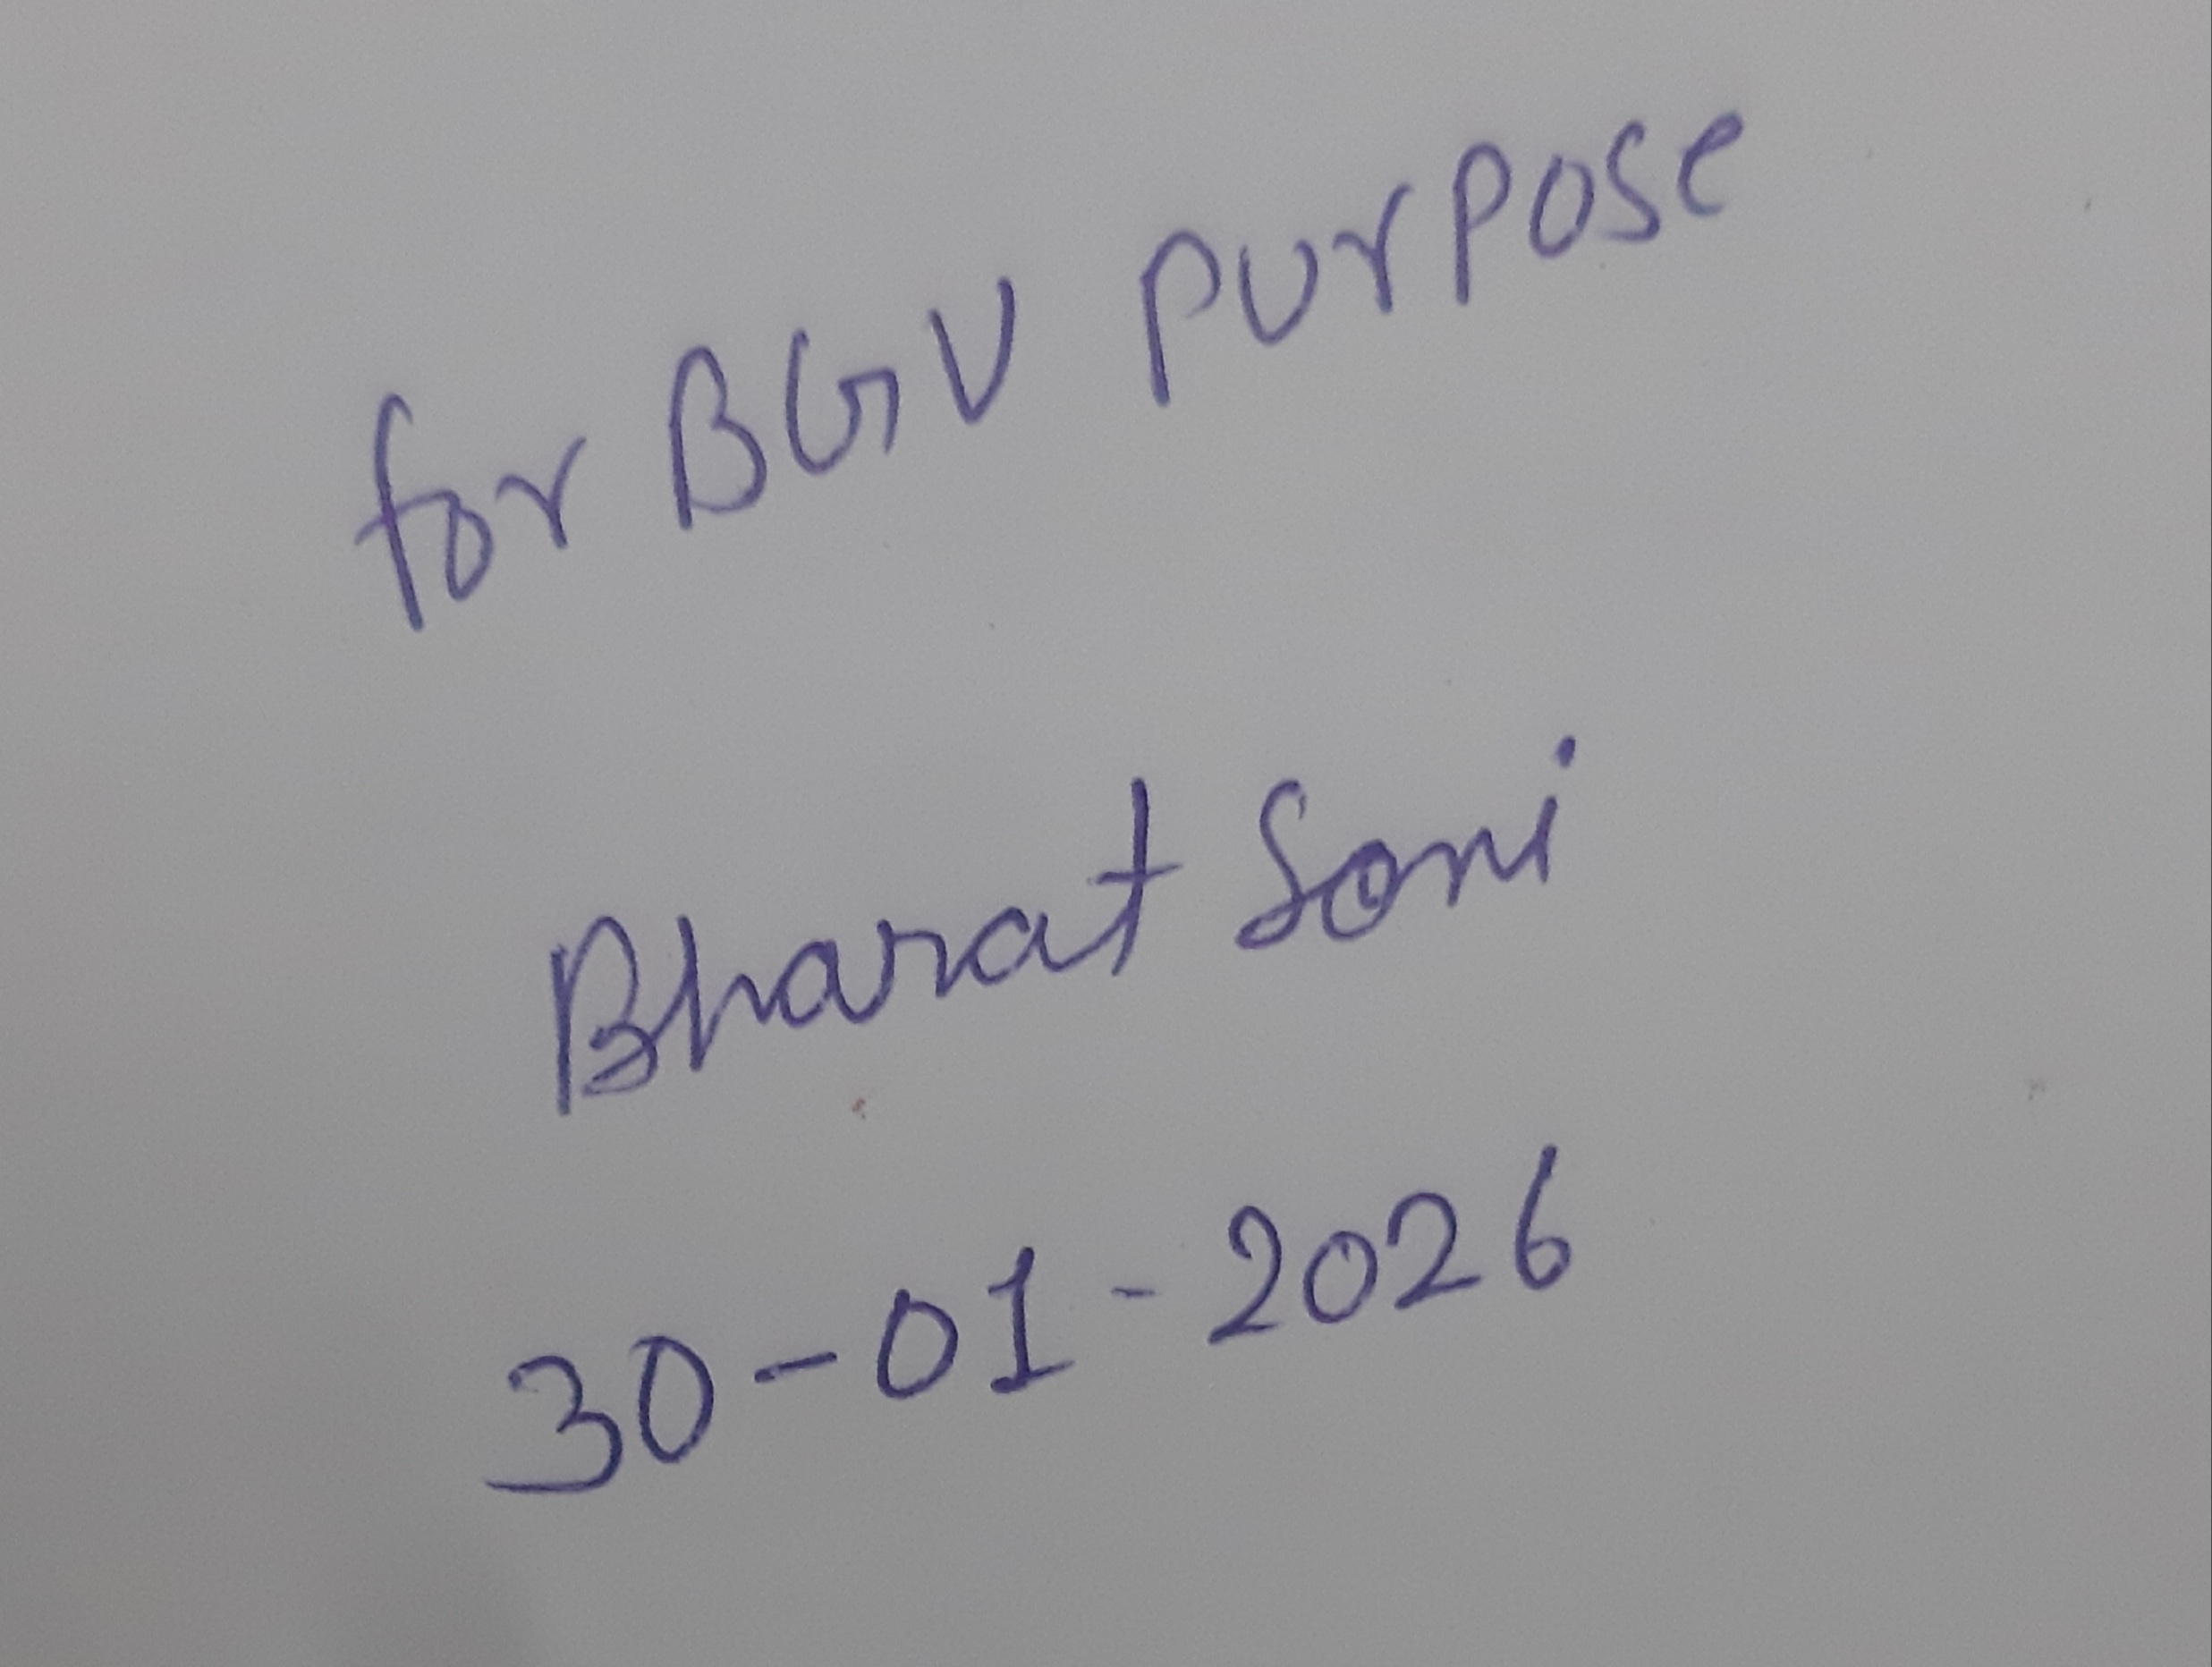 for BGV PurPose
Bharat Soni
30-01-2026